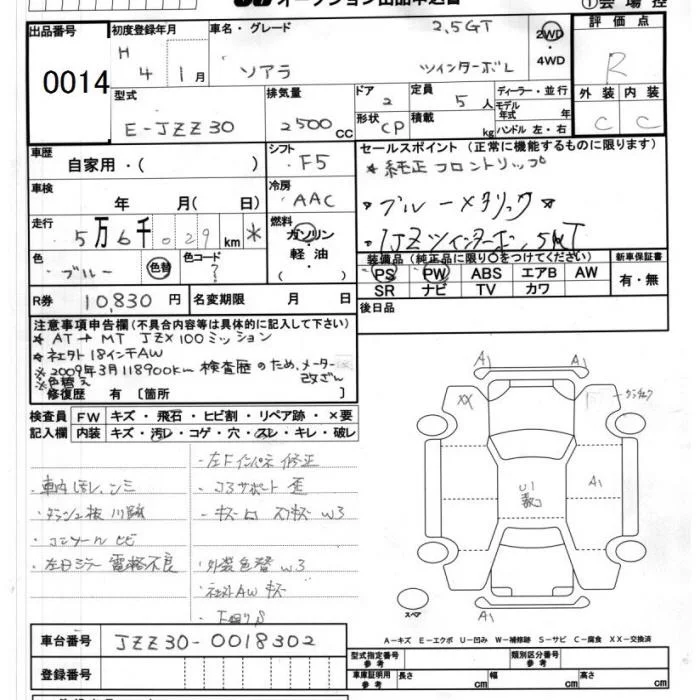 オークション出品申込書
①会場控
出品番号
0014
初度登録年月
H 4年 1月
車名・グレード
2.5GT
ソアラ ツインターボL
2WD
・
4WD
評価点
R
型式
E-JZZ30
排気量
2500 CC
ドア
2
定員
5人
形状
CP
積載
kg
ディーラー・並行
モデル年式 年
ハンドル 左・右
外装 内装
C C
車歴
自家用・( )
シフト
F5
セールスポイント (正常に機能するものに限ります)
*純正フロントリップ
*ブルーメタリック*
・1JZツインターボ、5MT
車検
年 月( 日)
冷房
AAC
走行
5万6千029km *
燃料
ガソリン
・
軽油
・( )
色
ブルー
色替
色コード
?
装備品 (純正品に限り○をつけてください)
PS PW ABS エアB AW
SR ナビ TV カワ
新車保証書
有・無
R券 10,830円
名変期限 月 日
後日品
注意事項申告欄 (不具合内容等は具体的に記入して下さい)
*AT→MT JZX100ミッション
*社外18インチAW
※2009年3月118900km 検査歴のため、メーター改ざん
※色替え
修復歴 有 [箇所 ]
検査員記入欄
FW キズ・飛石・ヒビ割・リペア跡・×要
内装 キズ・汚レ・コゲ・穴・スレ・キレ・破レ
・左Fインパネ修正
・車内ヨゴレ、シミ
・コアサポート歪
・コンソール ヒビ
・左ドアミラー 電格不良
・外装色替 W3
・社外AWキズ
・下回りS
A1
A1
XX
A1
U1
A1
スペア
A-キズ E-エクボ U-凹み W-補修跡 S-サビ C-腐食 XX-交換済
車台番号 JZZ30-0018302
登録番号
型式指定番号
参考
類別区分番号
参考
車庫証明用
参考
長さ cm
幅 cm
高さ cm